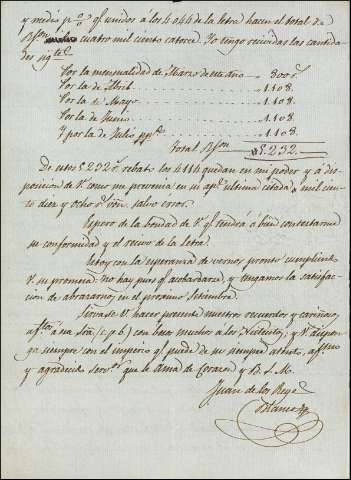 y medio p% q.e unidos á los 4044 de la letra hacen el total de
r.s von cuatro mil ciento catorce. Yo tengo recibidas las cantida
des sig.tes
Por la mensualidad de Marzo de este año 800 r.s
Por la de Abril 1.108.
Por la de Mayo 1.108.
Por la de Junio 1.108.
Y por la de Julio pp.do 1.108.
Total r.s von 5.232.
De estos 5.232 r.s rebato los 4114 quedan en mi poder y á dis
posicion de V. como me prevenia en su ap.da ultima citada mil cien
to diez y ocho r.s von. salvo error.
Espero de la bondad de V. q.e tendrá á bien contestarme
su conformidad y el recivo de la letra.
Estoy con la esperanza de vernos pronto cumpliendo
V. su promesa: no hay pues q.e acobardarse, y tengamos la satisfac
cion de abrazarnos en el proximo Setiembre.
Sirvase V. hacer presente nuestros recuerdos y cariños
af.tos á su Sra (c.p.b.) con besos muchos á los y V. dispon
ga siempre con el imperio q.e puede de su siempre atento, af.mo
y agradecido serv.or que le ama de corazon y B. S. M.
Juan de los Reyes
Blanco